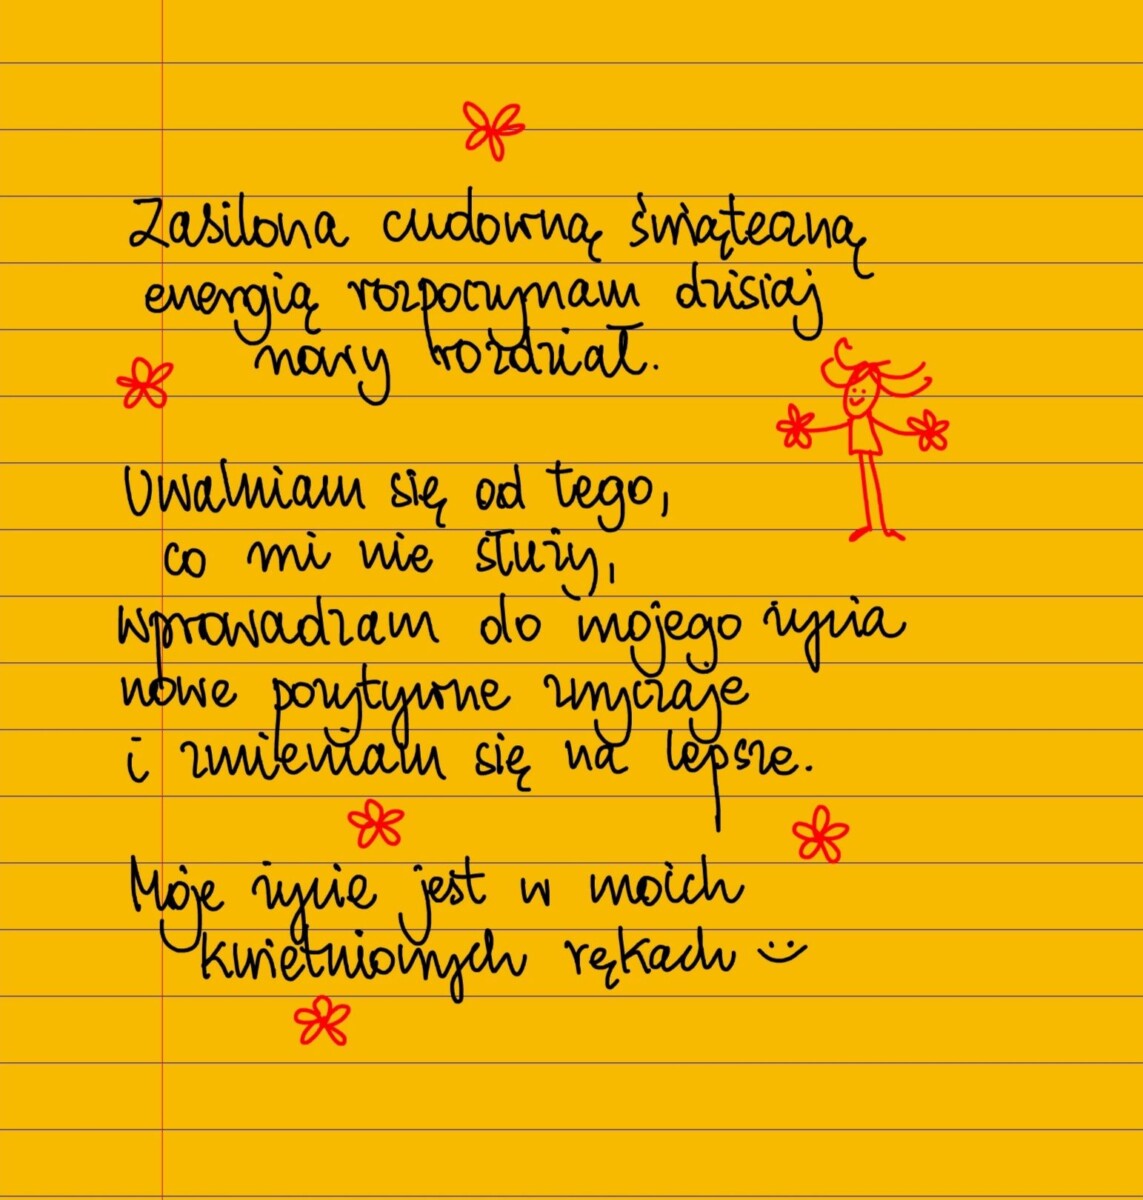 Zasilona cudowną świąteczną
energią rozpoczynam dzisiaj
nowy rozdział.
Uwalniam się od tego,
co mi nie służy,
wprowadzam do mojego życia
nowe pozytywne zwyczaje
i zmieniam się na lepsze.
Moje życie jest w moich
kwietniowych rękach :)